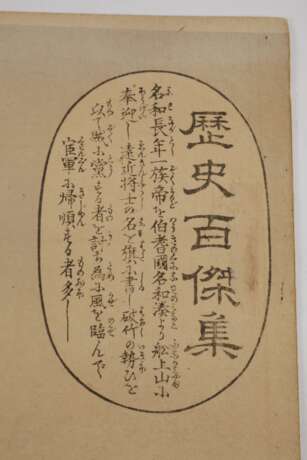 歴史百傑集
名和長年一族帝を伯耆國名和湊より舩上山に
奉迎し遠近将士の名を旗に書し破竹の勢ひを
以て賊に黨する者を討が為に風を臨んで
官軍に帰順する者多し